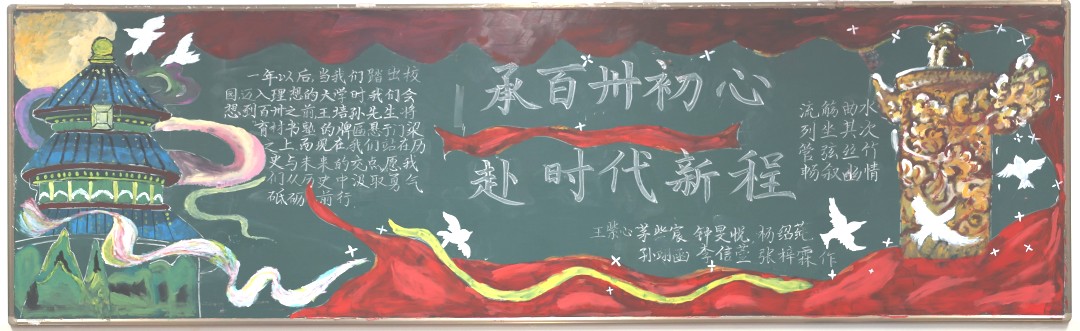 一年以后,当我们踏出校
园迈入理想的大学时我们会
想到百卅之前,王培孙先生将
育材书塾的牌匾悬于门梁
之上而现在我们站在历
史与未来的交点,愿我
们从历史中汲取勇气
砥砺前行.
承百卅初心
赴时代新程
流觞曲水
列坐其次
管弦丝竹
畅叙幽情
王紫心 茅 宸 钟昊悦 杨绍
孙翊函 李信萱 张梓霖 作